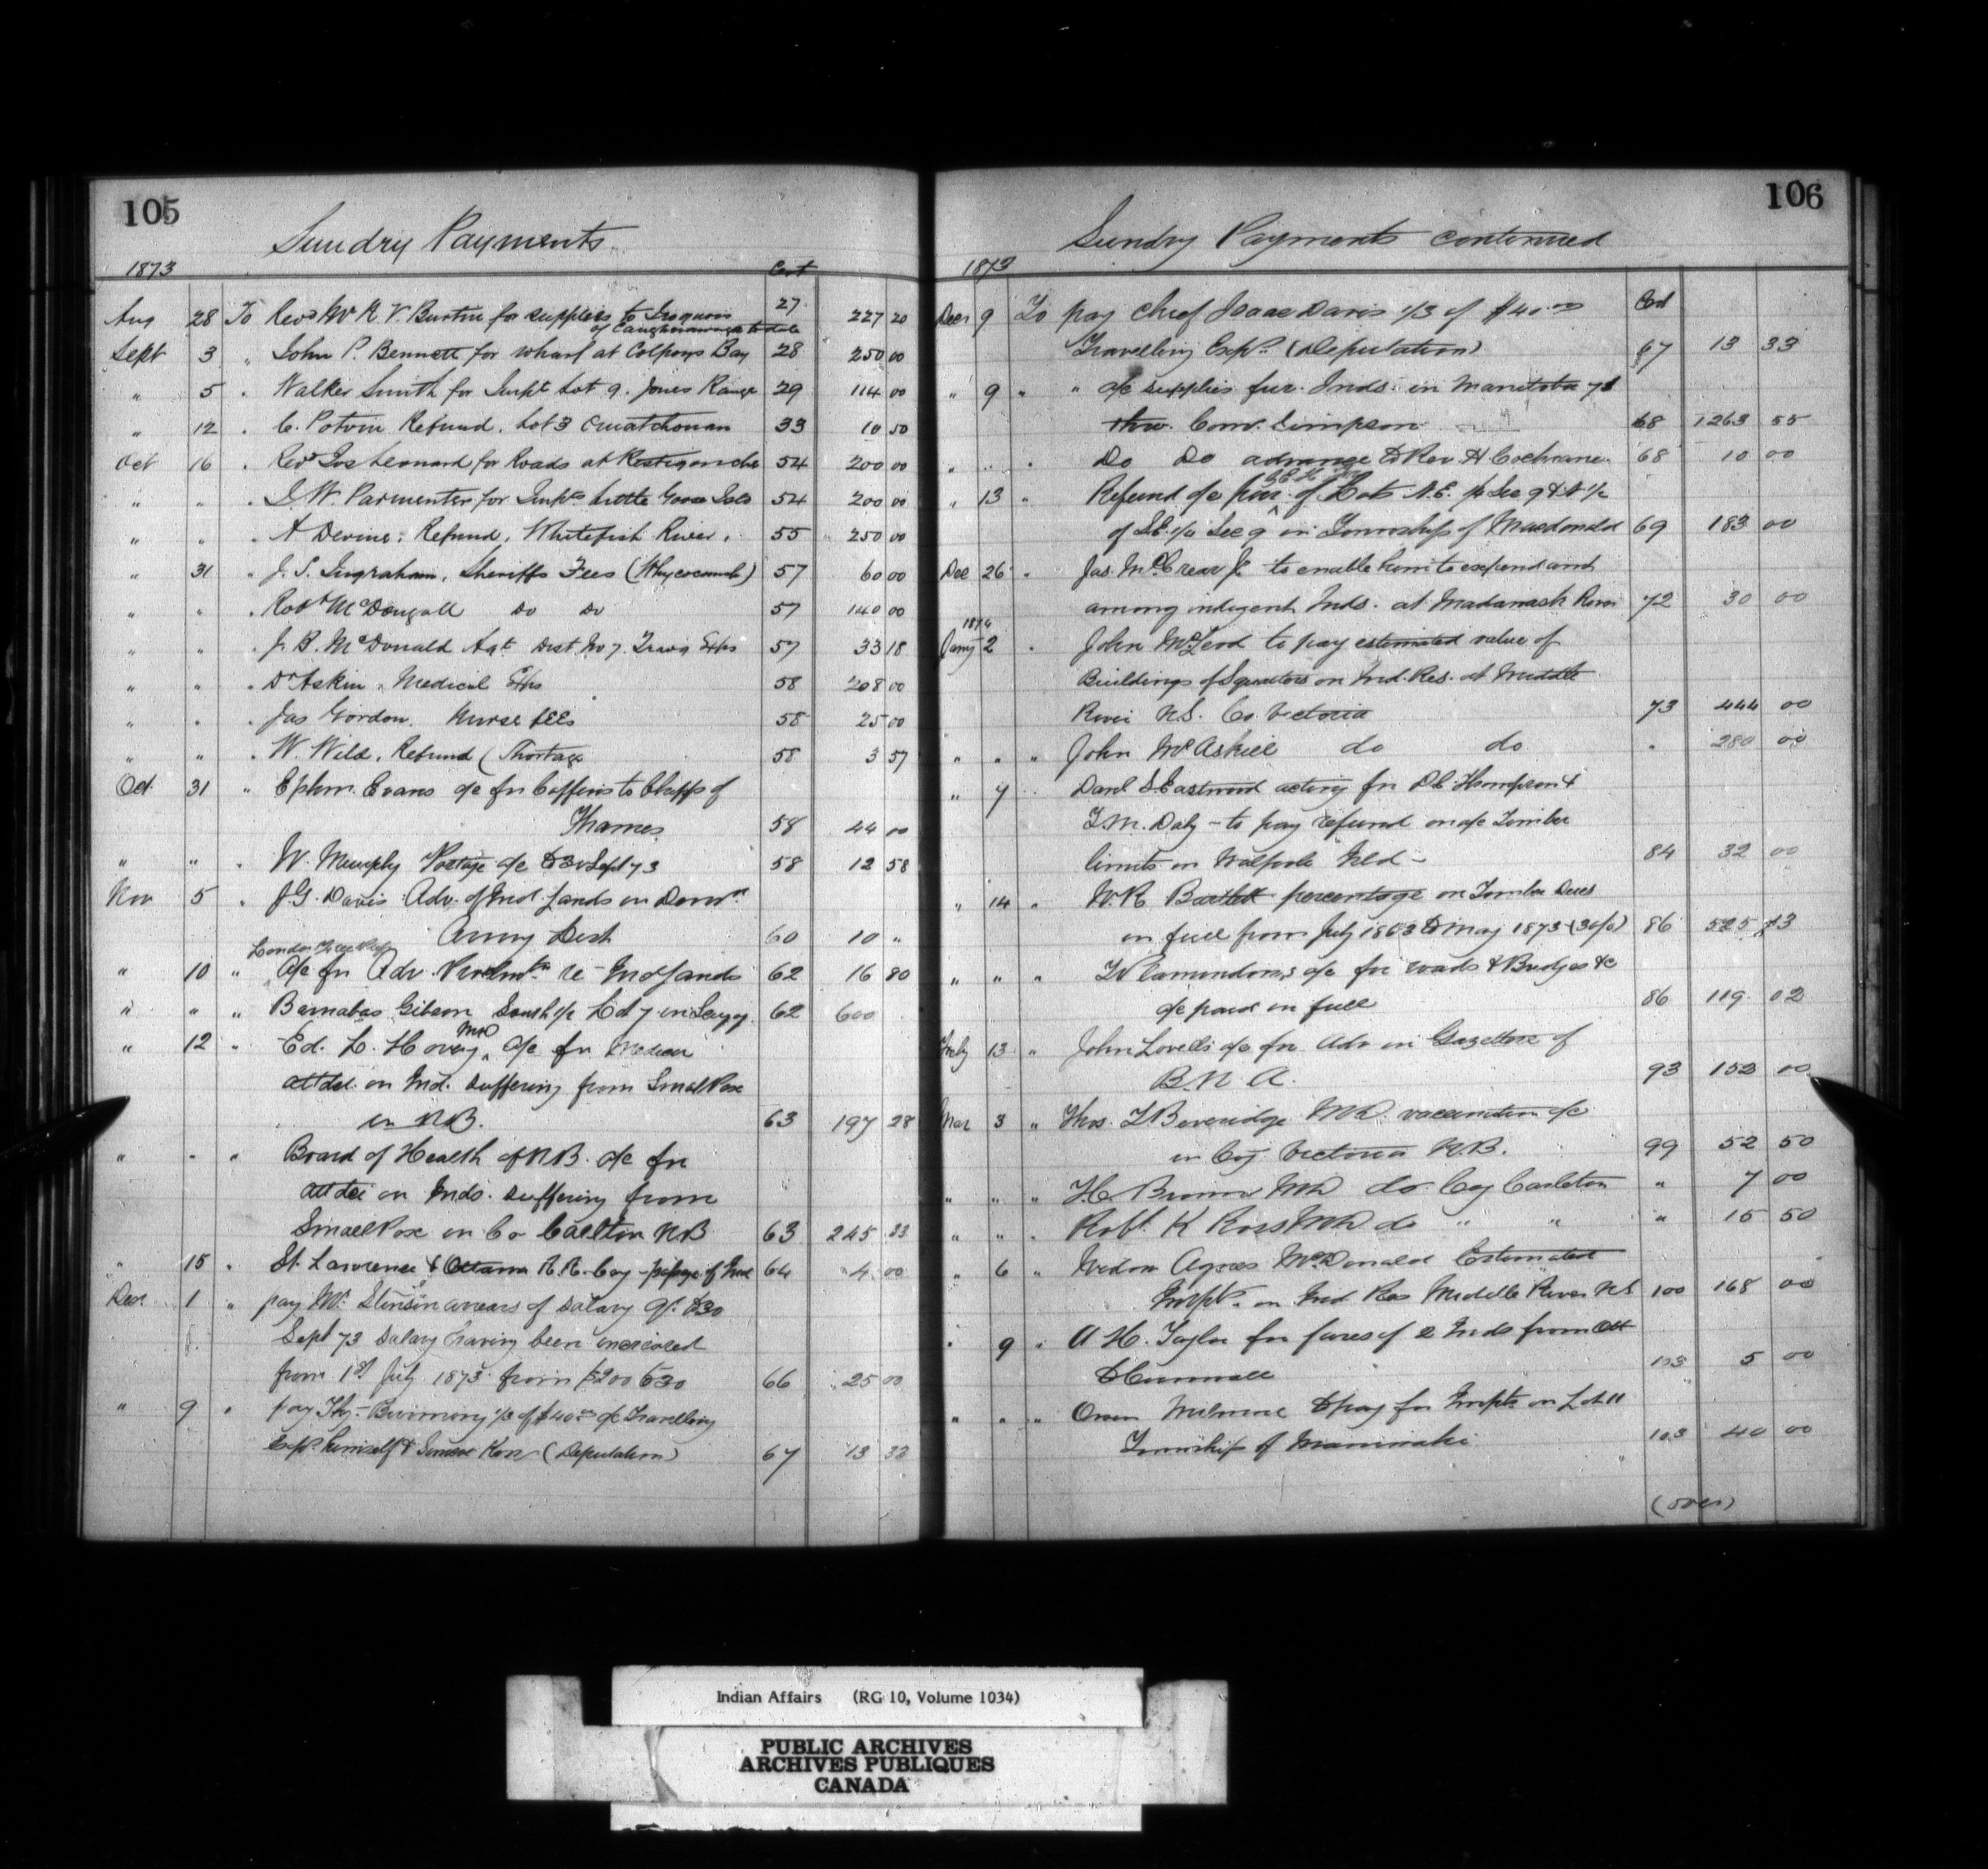 105
Sundry Payments
1873 Cert
Aug 28 To Revd Mr R V. Burtin for supplies to Iroquois of Caughnawaga to date 27 227 20
Sept 3 " John P. Bennett for wharf at Colpoys Bay 28 250 00
" 5 " Walker Smith for Impts Lot 9. Jones Range 29 114 00
" 12 " C. Potvin Refund. Lot 3 Ouiatchouan 33 10 50
Oct 16 " Revd Jos Leonard for Roads at Restigouche 54 200 00
" " " J. W. Parmenter for Impts Little Goose Isld 54 200 00
" " " A Devine; Refund, Whitefish River, 55 250 00
" 31 " J. S. Ingraham, Sheriffs Fees (Whycocomah) 57 60 00
" " " Robt McDougall Do Do 57 140 00
" " " J. B. McDonald Agt Dist. No 7. Travg Exps 57 33 18
" " " Dr Askin, Medical Exps 58 208 00
" " " Jas Gordon, Nurse fees 58 25 00
" " " W. Wild, Refund (Shortage 58 3 57
Oct 31 " Ephm. Evans a/c for Coffins to Chipps of
Thames 58 44 00
" " " W. Murphy Postage a/c to 30 Sept 73 58 12 58
Nov 5 " J G. Davis Adv. of Ind. Lands in Domn
Army List 60 10 "
London Free Press
" 10 " a/c for Adv. re Ind Lands 62 16 80
" " " Barnabas Gibson South 1/2 Lot 7 in 62 600
" 12 " Ed. L. MD a/c for Medical
attdce. on Ind. suffering from Small Pox
in N.B. 63 197 28
" " " Board of Health of N.B. a/c for
attdce on Inds. suffering from
Small Pox in Co Carlton NB 63 245 33
" 15 " St. Lawrence & Ottawa R.R. Coy - passge of Ind 64 4 00
Dec. 1 " pay Mr. Stinson arrears of salary qr. to 30
Sept 73 salary having been increased
from 1st July 1873 from $200 to 66 25 00
" 9 " pay Thos. 1/3 of $40.00 a/c Travelling
Exps himself & (Deputation) 67 13 33
106
Sundry Payments continued
1873 Cert
Decr 9 To pay Chief Isaac Davis 1/3 of $40.00
Travelling Exps. (Deputation) 67 13 33
" 9 " " a/c supplies fur. Inds. in Manitoba
thro. Com. Simpson 68 1263 55
" " " Do Do advance to Rev H Cochrane. 68 10 00
" 13 " Refund a/c pur. of Lots N.E. 1/4 Sec 9 & N 1/2
of S.E. 1/4 Sec 9 in Township of Macdonald 69 183 00
Dec 26 " Jas. McCrear Jr to enable him to expend amt
among indigent Inds. at Madawask River 72 30 00
1874
Jany 2 " John McLeod to pay estimated value of
Buildings of Squatters on Ind. Res. at Middle
River N.S. Co. Victoria 73 444 00
" " " John McAskill do do " 280 00
" 7 " Danl S Eastwood acting for D C Thompson &
T. M. Daly - to pay refund on a/c Timber
limits on Walpole Isld - 84 32 00
" 14 " W. R. Bartlett percentage on Timber Dues
in full from July 1863 to May 1873 - (3 o/o) 86 525 73
" " " a/c for roads & Bridges &c
a/c paid in full 86 119 02
Feby 13 " John Lovells a/c for Adv in Gazetteer of
B. N. A. 93 152 00
Mar 3 " Thos. L Beveridge MD. vaccination a/c
in Coy. Victoria N.B. 99 52 50
" " " H. C. Brown MD do Coy Carleton " 7 00
" " " Robt. K Ross MD do " " " 15 50
" 6 " Widow Agnes McDonald Estimated
Impts. on Ind Res Middle River NS 100 168 00
" 9 " A H. Taylor for fares of 2 Inds from Ott
to Cornwall 103 5 00
" " " Owen to pay for Impts on Lot 11
Township of Maniwaki 103 40 00
(over)
Indian Affairs (RG 10, Volume 1034)
PUBLIC ARCHIVES
ARCHIVES PUBLIQUES
CANADA